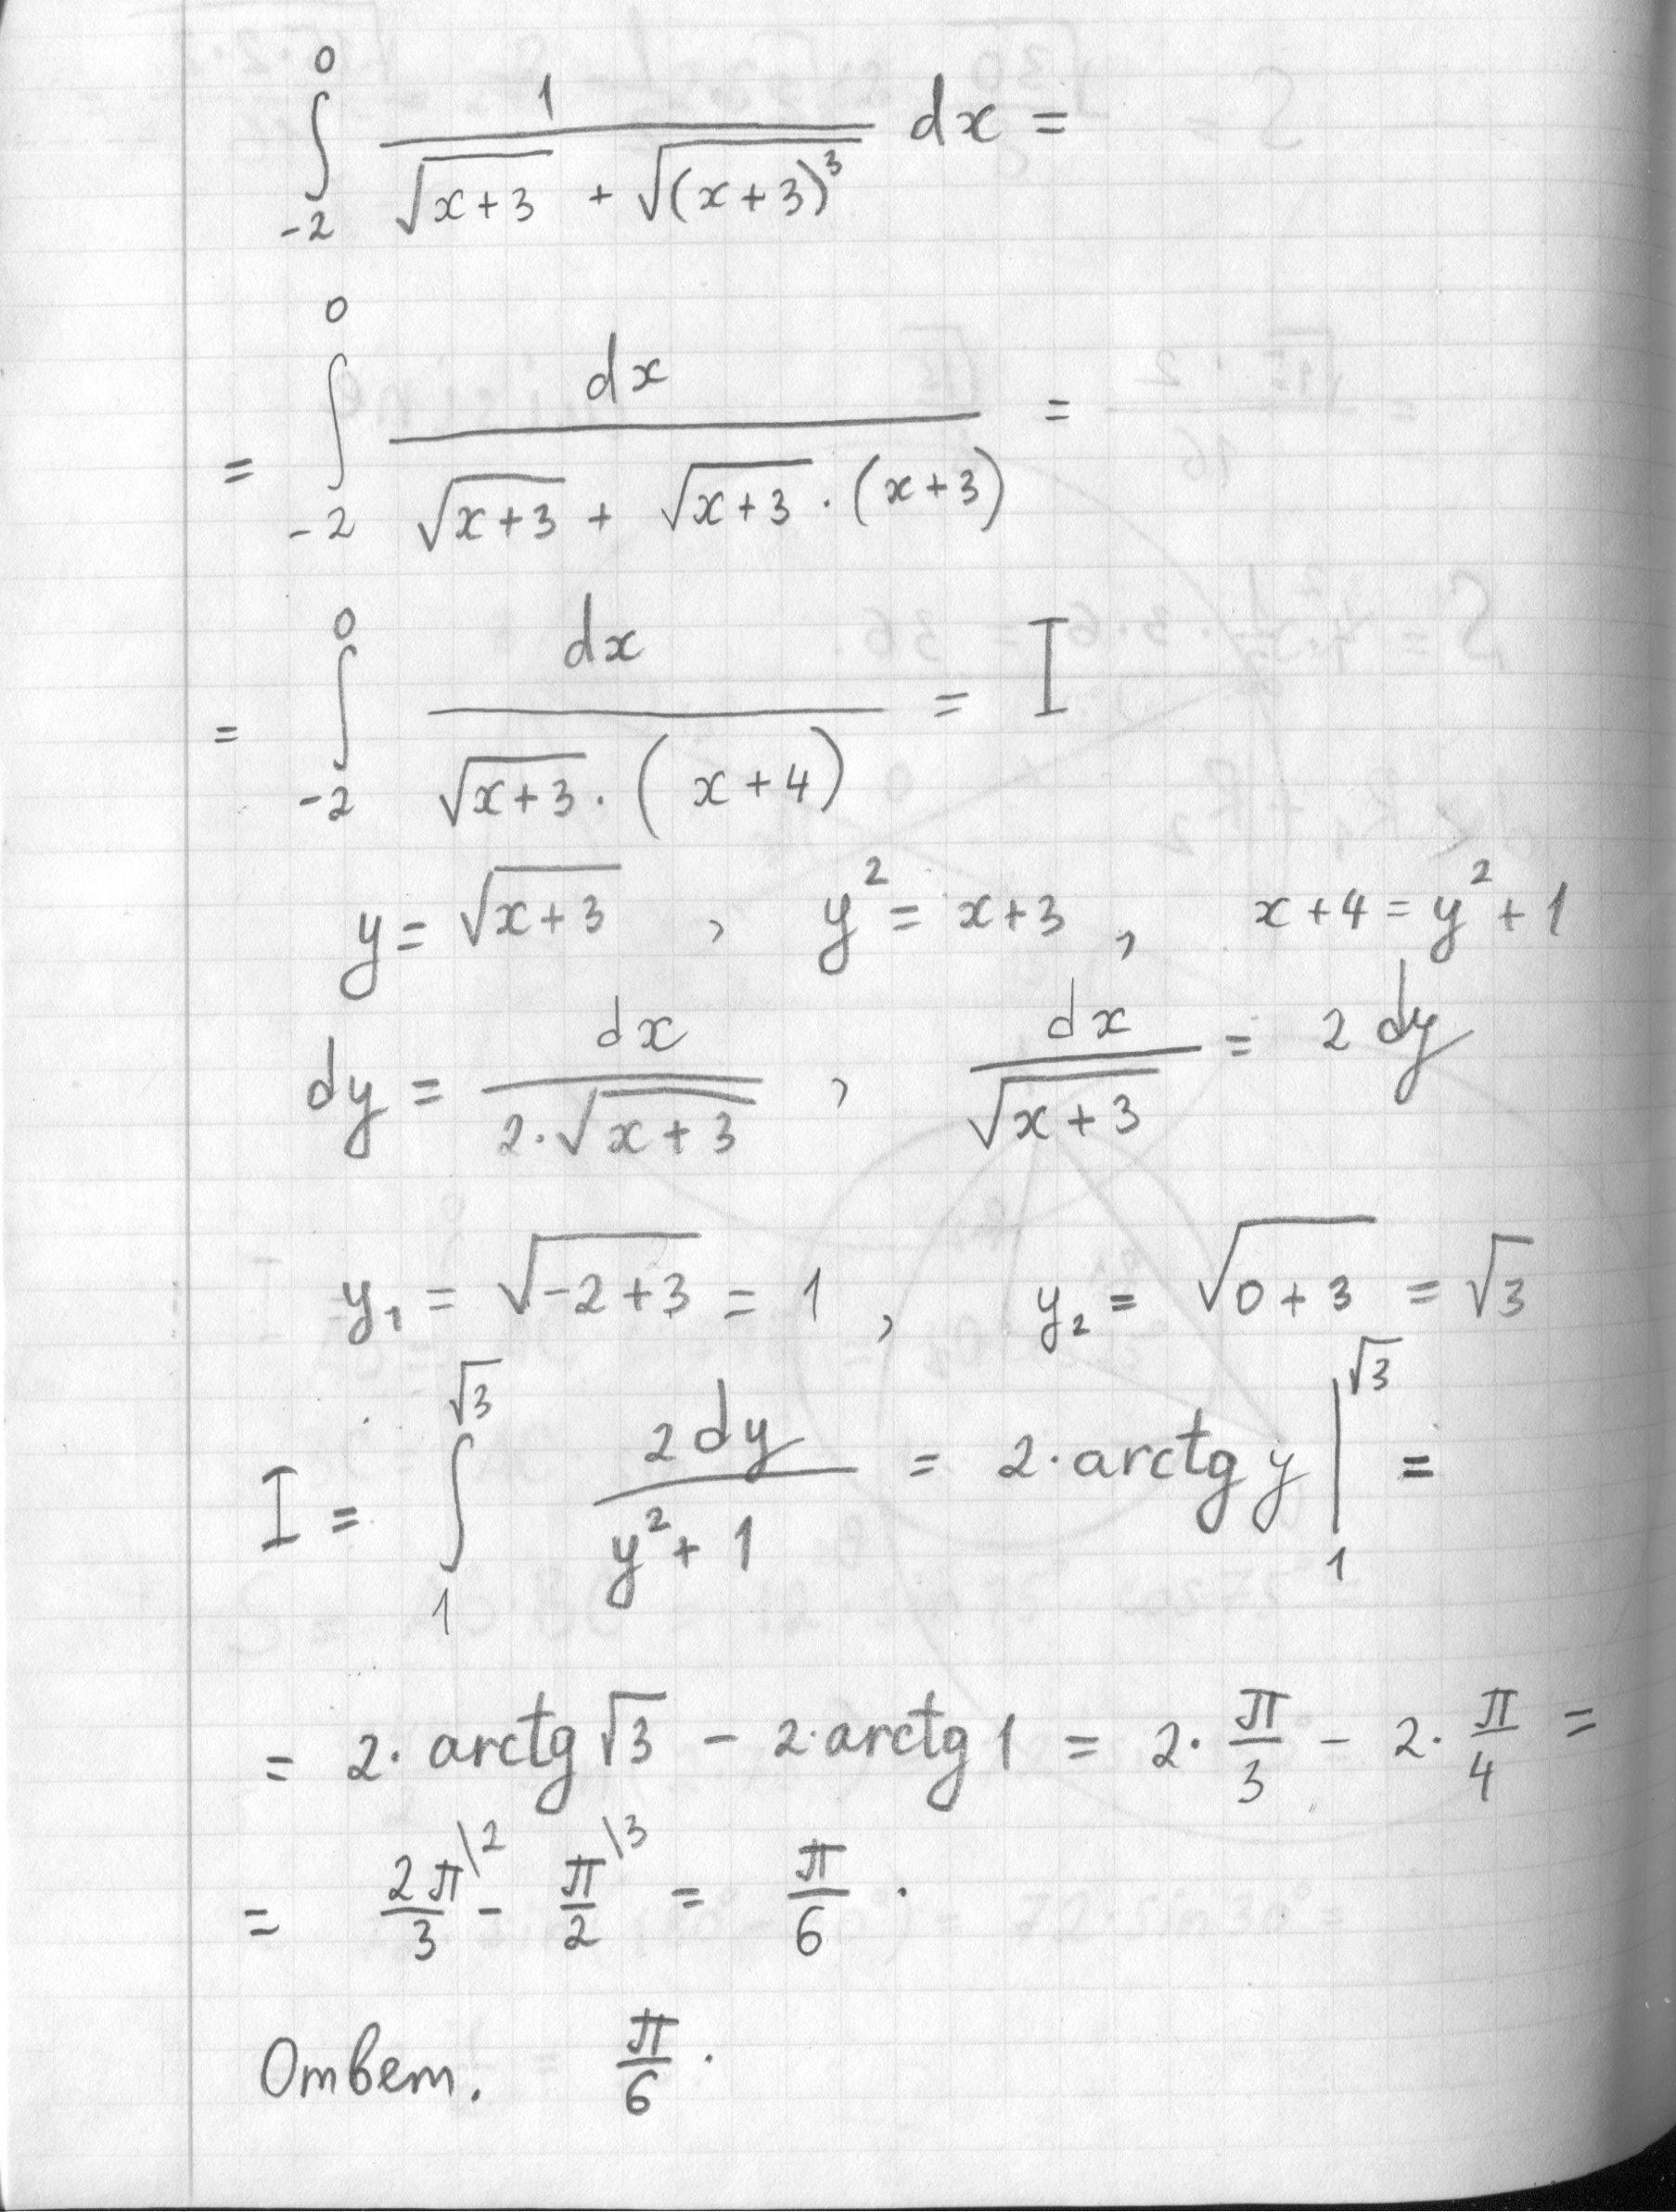 ∫_{-2}^{0} 1/(√(x+3) + √((x+3)³)) dx =
= ∫_{-2}^{0} dx/(√(x+3) + √(x+3)·(x+3)) =
= ∫_{-2}^{0} dx/(√(x+3)·(x+4)) = I
y = √(x+3) , y² = x+3 , x+4 = y²+1
dy = dx/(2·√(x+3)) , dx/√(x+3) = 2 dy
y₁ = √(-2+3) = 1 , y₂ = √(0+3) = √3
I = ∫_{1}^{√3} 2dy/(y²+1) = 2·arctg y |_{1}^{√3} =
= 2·arctg √3 - 2·arctg 1 = 2·π/3 - 2·π/4 =
= 2π/3 \2 - π/2 \3 = π/6 .
Ответ. π/6 .